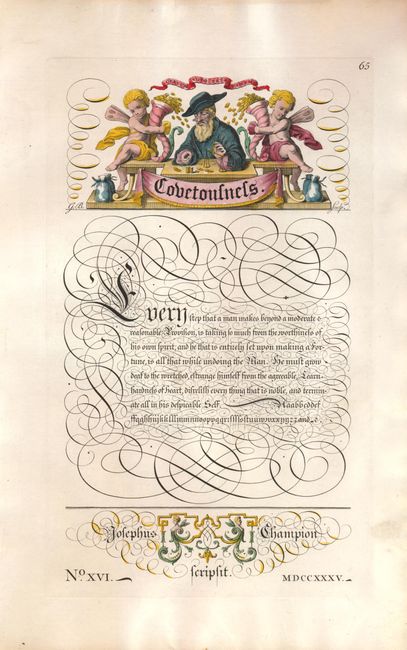 65
Covetousness.
G. B. Sculp.
Every step that a man makes beyond a moderate &
reasonable Provision, is taking so much from the worthiness of
his own spirit, and he that is entirely set upon making a For
tune, is all that while undoing the Man. He must grow
deaf to the wretched, estrange himself from the agreeable, Learn
hardness of heart, disrelish every thing that is noble, and termin
ate all in his despicable Self. Aaabbcddef
ffgghhijkklllmmnnooppqqrrsſſstuuwwxxyyzz and
Josephus Champion
scripsit.
No. XVI. MDCCXXXV.